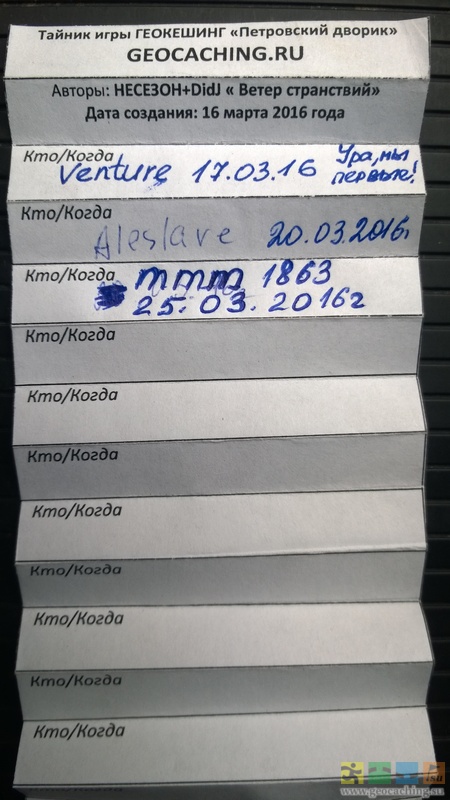 Тайник игры ГЕОКЕШИНГ «Петровский дворик»
GEOCACHING.RU
Авторы: НЕСЕЗОН+DidJ « Ветер странствий»
Дата создания: 16 марта 2016 года
Кто/Когда
Venture 17.03.16 Ура, мы
первые!
Кто/Когда
Aleslave 20.03.2016г
Кто/Когда
mmm 1863
25.03.2016г
Кто/Когда
Кто/Когда
Кто/Когда
Кто/Когда
Кто/Когда
Кто/Когда
Кто/Когда
Кто/Когда
www.geocaching.su